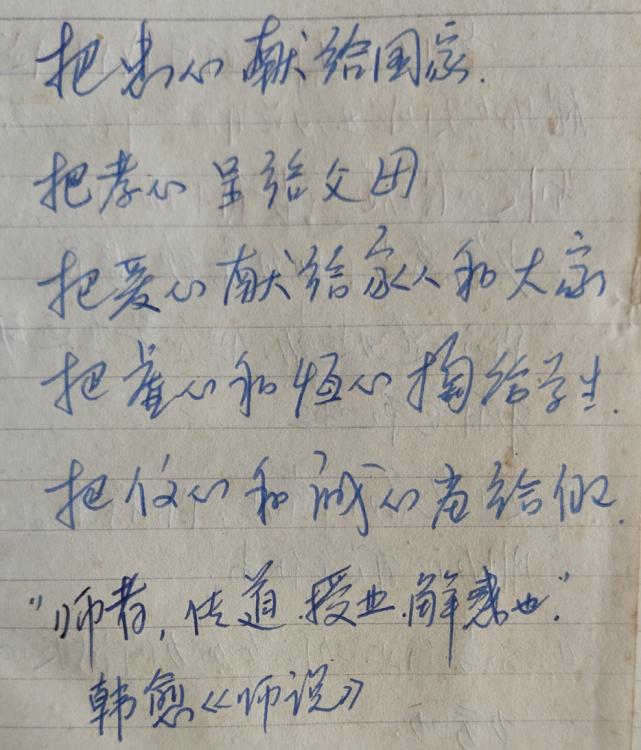 把忠心献给国家.
把孝心呈给父母
把爱心献给家人和大家
把爱心和恒心掏给学生.
把心和诚心给
"师者,传道.授业.解惑也."
韩愈《师说》